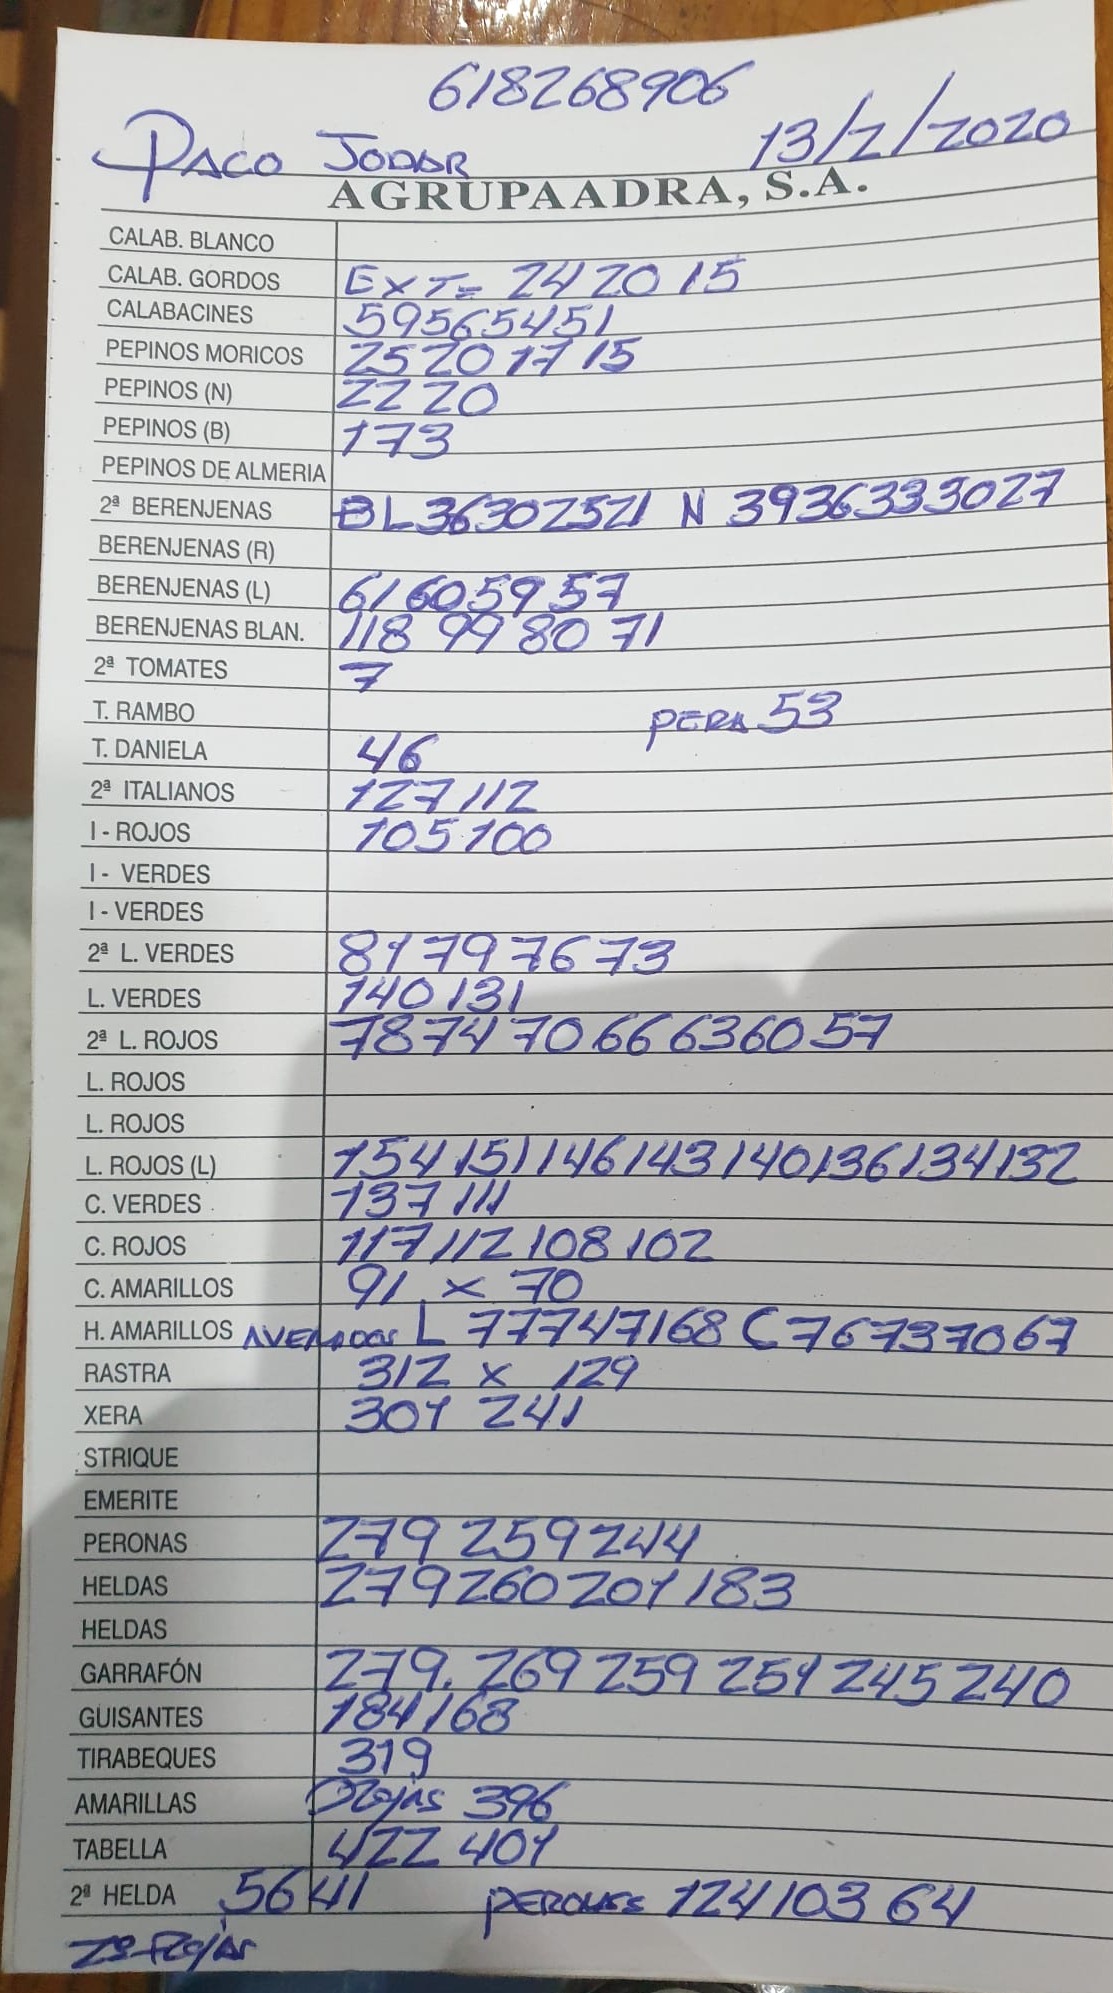 618268906
PACO JODAR 13/2/2020
AGRUPAADRA, S.A.
CALAB. BLANCO
CALAB. GORDOS EXT= 24 20 15
CALABACINES 59 56 54 51
PEPINOS MORICOS 25 20 17 15
PEPINOS (N) 22 20
PEPINOS (B) 173
PEPINOS DE ALMERIA
2ª BERENJENAS BL 36 30 25 21 N 39 36 33 30 27
BERENJENAS (R)
BERENJENAS (L) 61 60 59 57
BERENJENAS BLAN. 118 99 80 71
2ª TOMATES 7
T. RAMBO PERA 53
T. DANIELA 46
2ª ITALIANOS 127 112
I - ROJOS 105 100
I - VERDES
I - VERDES
2ª L. VERDES 81 79 76 73
L. VERDES 140 131
2ª L. ROJOS 78 74 70 66 63 60 57
L. ROJOS
L. ROJOS
L. ROJOS (L) 154 151 146 143 140 136 134 132
C. VERDES 137 111
C. ROJOS 117 112 108 102
C. AMARILLOS 91 x 70
H. AMARILLOS L 77 74 71 68 C 76 73 70 67
RASTRA 312 x 129
XERA 301 241
STRIQUE
EMERITE
PERONAS 279 259 244
HELDAS 279 260 201 183
HELDAS
GARRAFÓN 279. 269 259 251 245 240
GUISANTES 184 168
TIRABEQUES 319
AMARILLAS Rojas 396
TABELLA 422 401
2ª HELDA 56 41 124 103 64
2ª Rojas